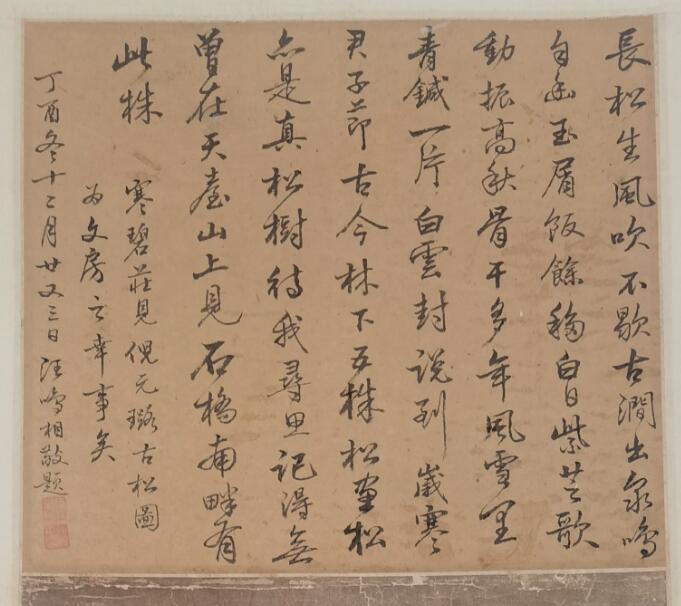 長松生風吹不歇古澗出泉鳴
自幽玉屑飯餘稱白日紫芝歌
動振高秋骨干多年風雪里
青鍼一片白雲封說到歲寒
君子節古今林下五株松畫松
亦是真松樹待我尋思記得無
曾在天臺山上見石橋南畔有
此株
寒碧莊見倪元璐古松圖
為文房之幸事矣
丁酉冬十二月廿又三日汪鳴相敬題